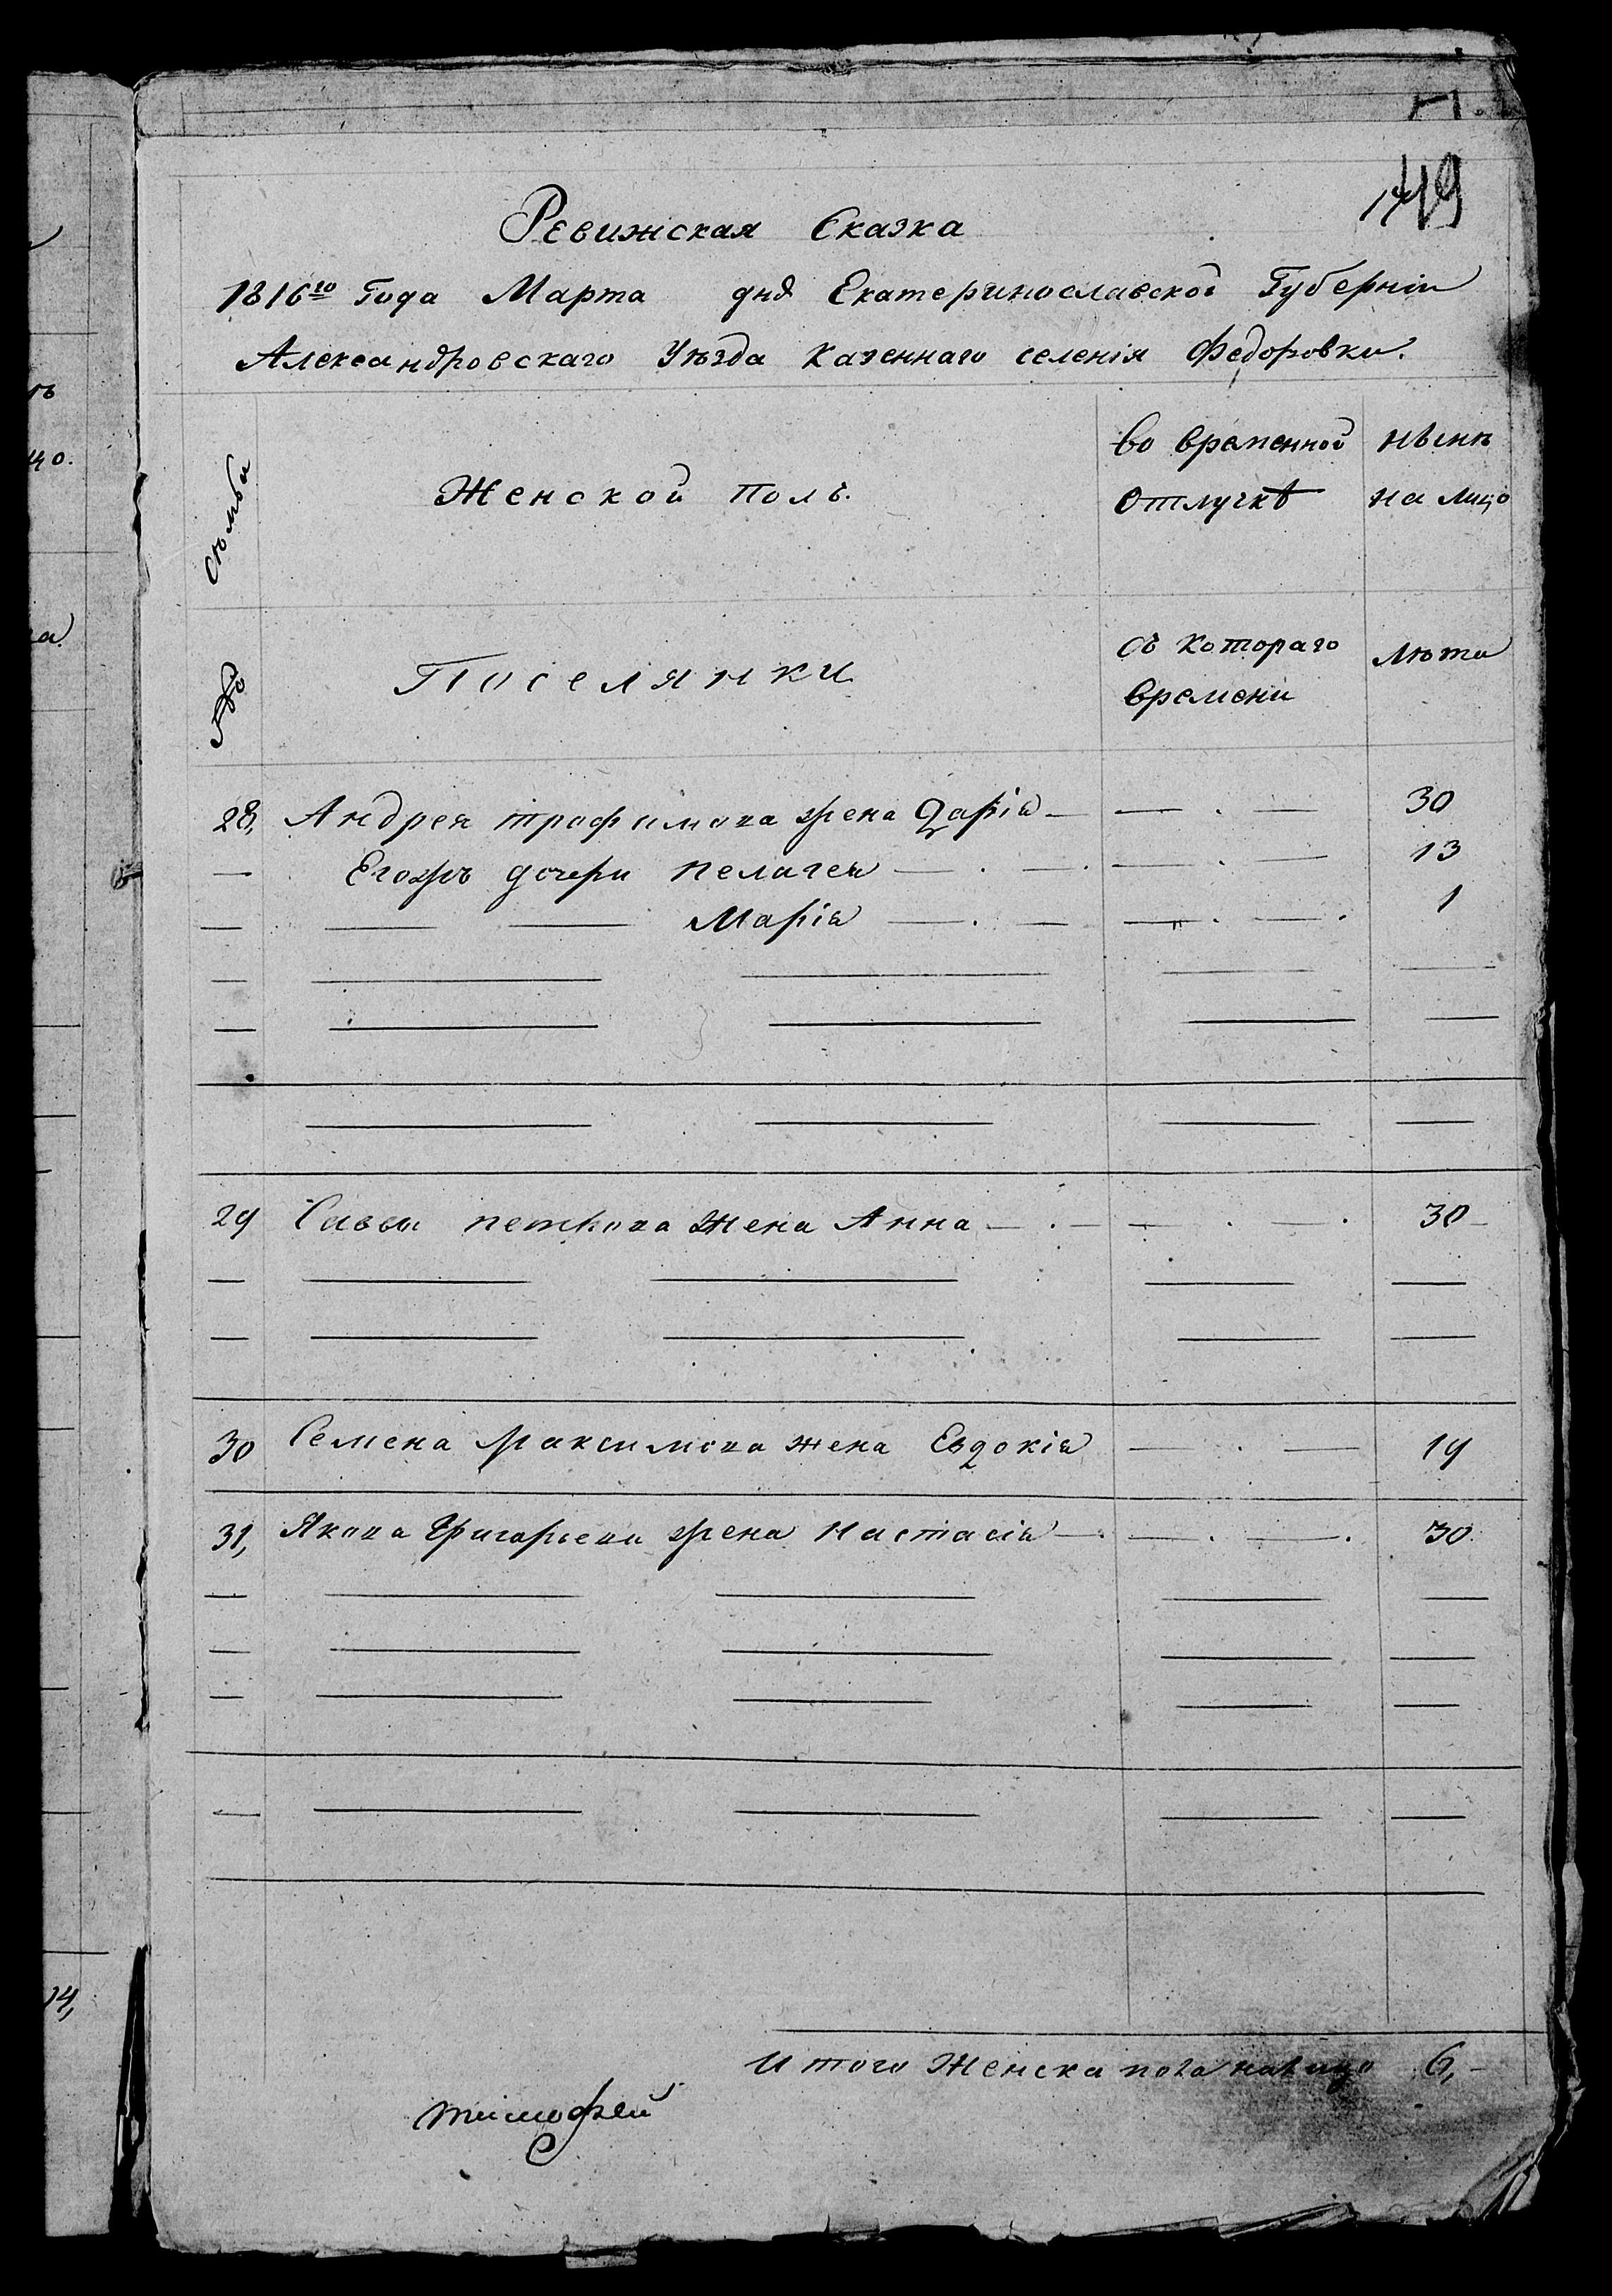 149
Ревижская Сказка
1816го Года Марта дня Екатеринославской Губерніи
Александровскаго Уѣзда Казеннаго селенія Федоровки.
Семьи
Женской полъ.
во временной
отлучкѣ
нынѣ
на лицо
№
Поселянки
съ котораго
времени
лѣта
28, Андрея трофимова жена Дарія — — . — 30
— Егожъ дочери пелагея — . — . — . — 13
— — — Марія — . — — . — . 1
29 Саввы петрова жена Анна — . — — . — . 30
30 Семена максимова жена Евдокія — . — 19
31, Якова Григорьева жена Настасія — — . — . 30
Итого Женска пола налицо 6,
тимофей